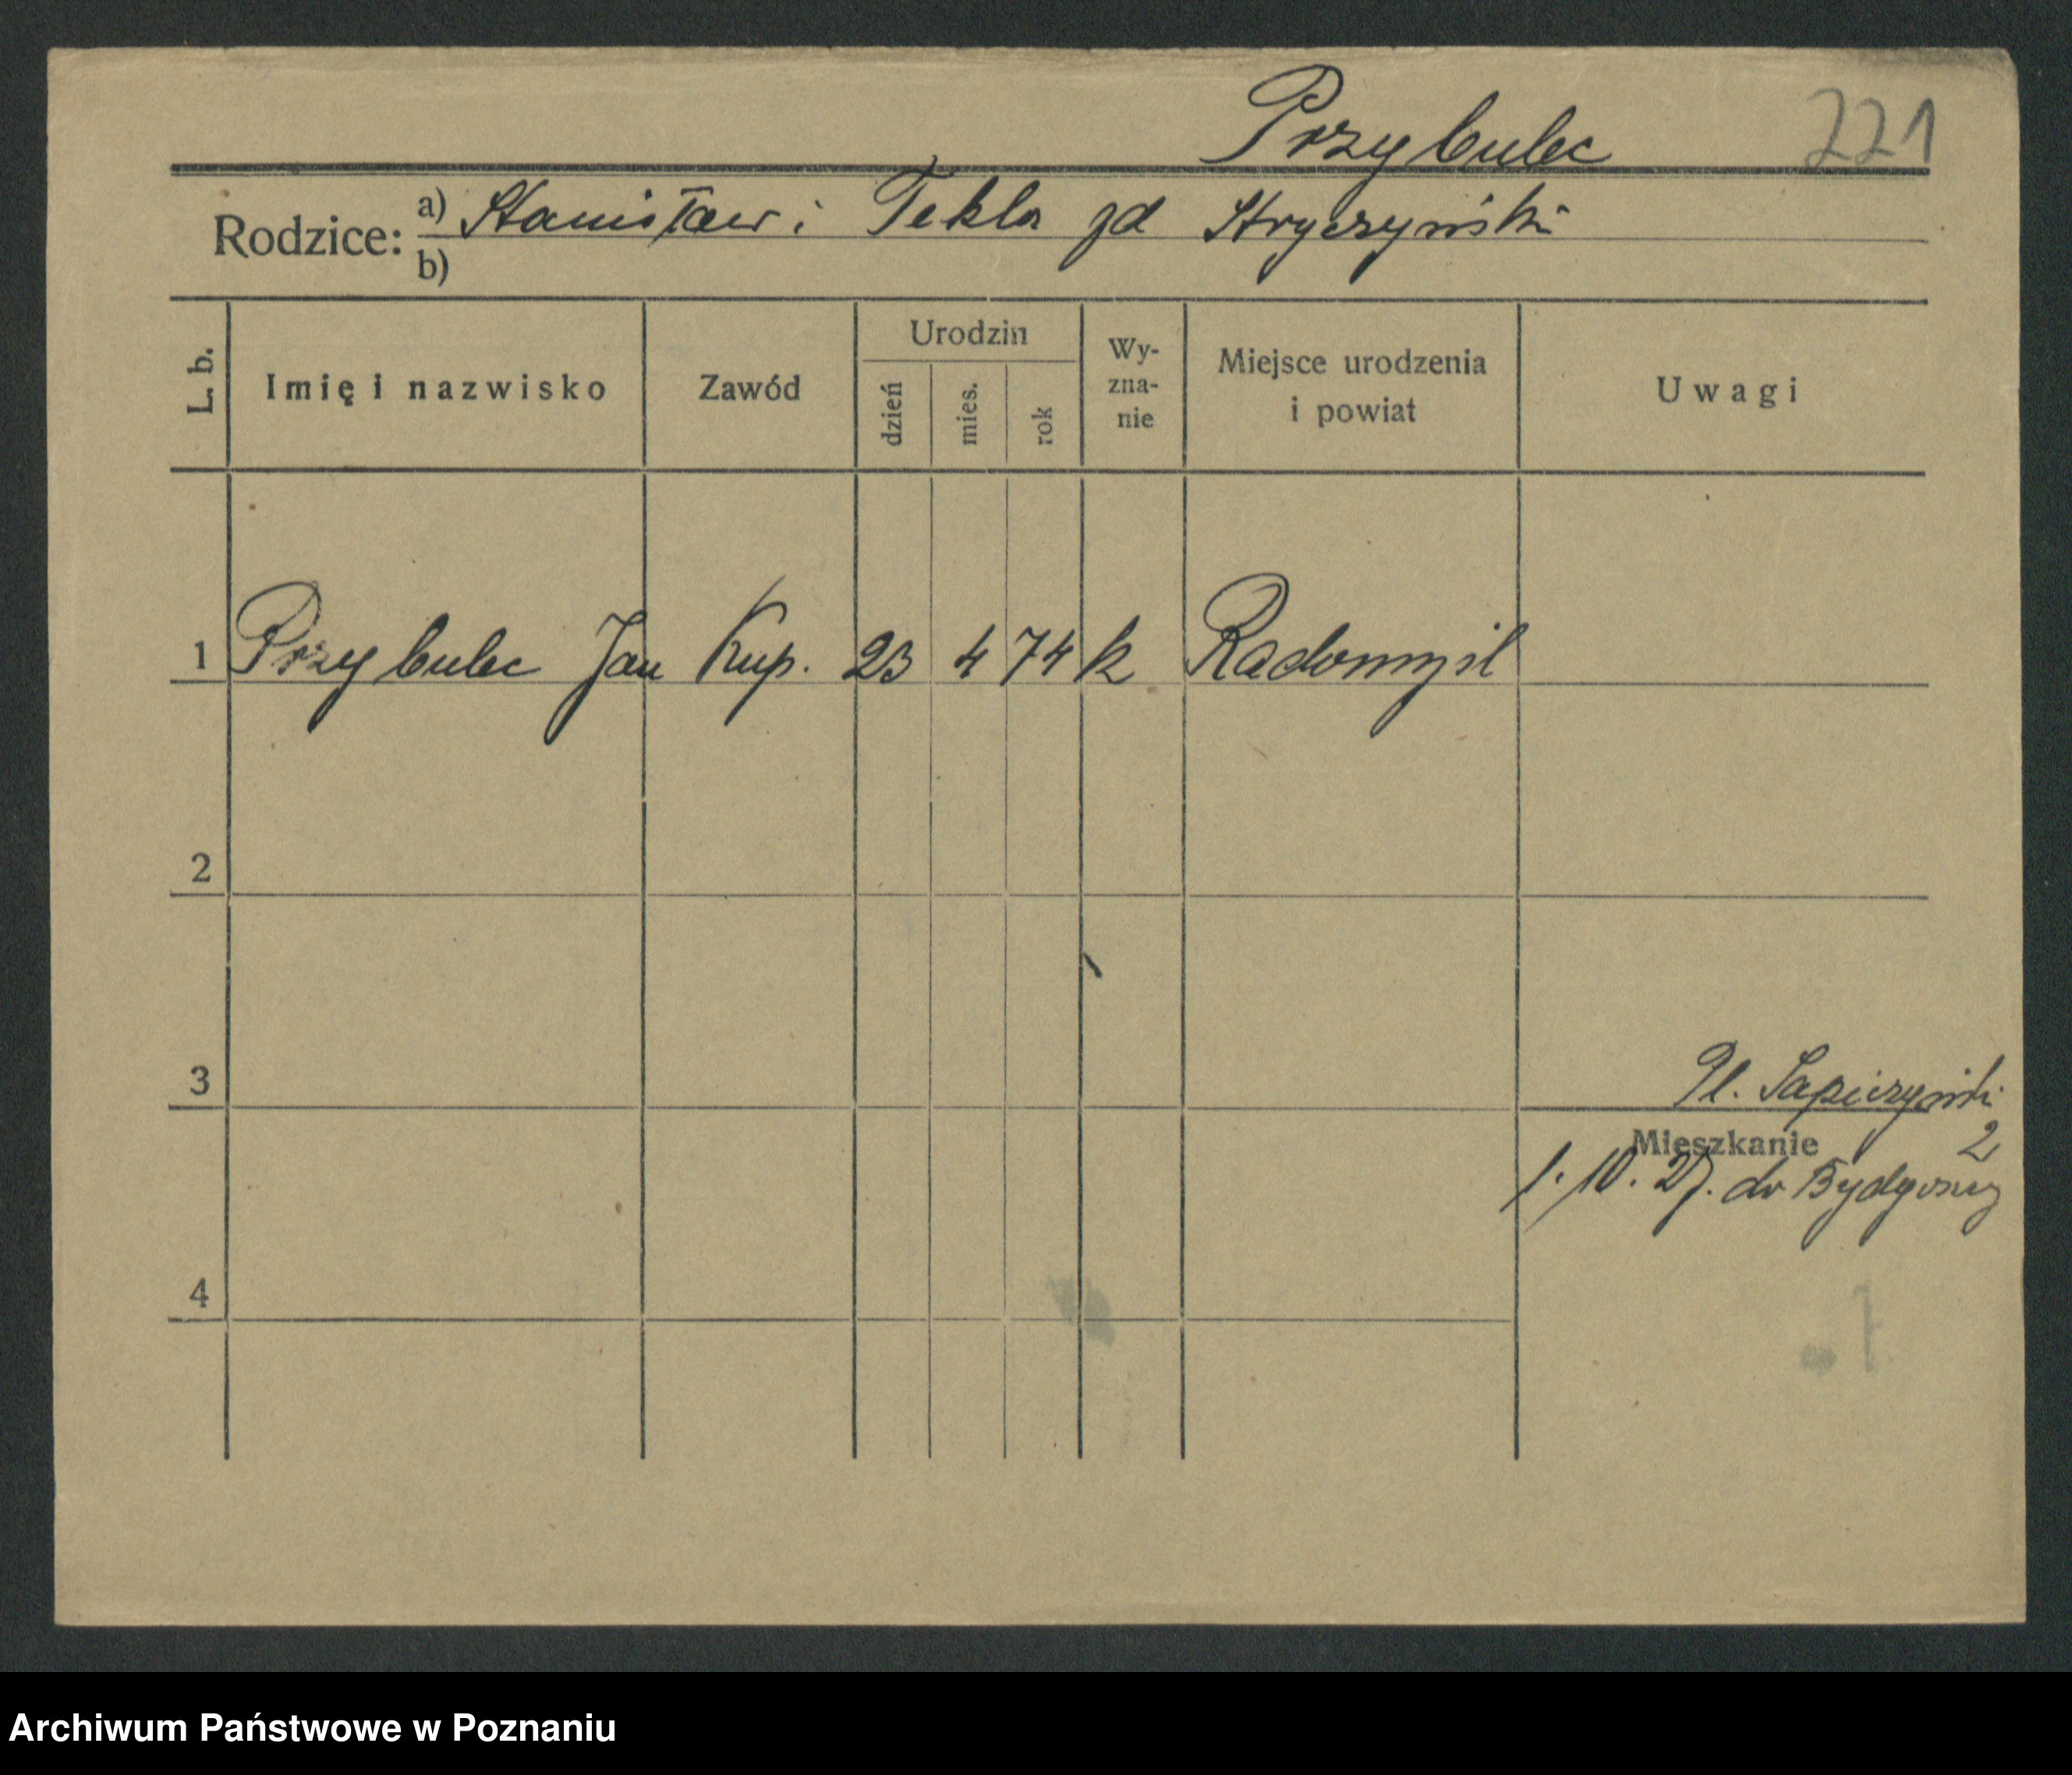 Przybulec 221
Rodzice: a) Stanisław i Tekla zd Stryczyński
b)
L. b. Imię i nazwisko Zawód Urodzin dzień mies. rok Wy-zna-nie Miejsce urodzenia i powiat Uwagi
1 Przybulec Jan Kup. 23 4 74 k Radomyśl
2
3
Pl. Sapieżyński
Mieszkanie 2
1. 10. 27. do Bydgoszcz
4
Archiwum Państwowe w Poznaniu